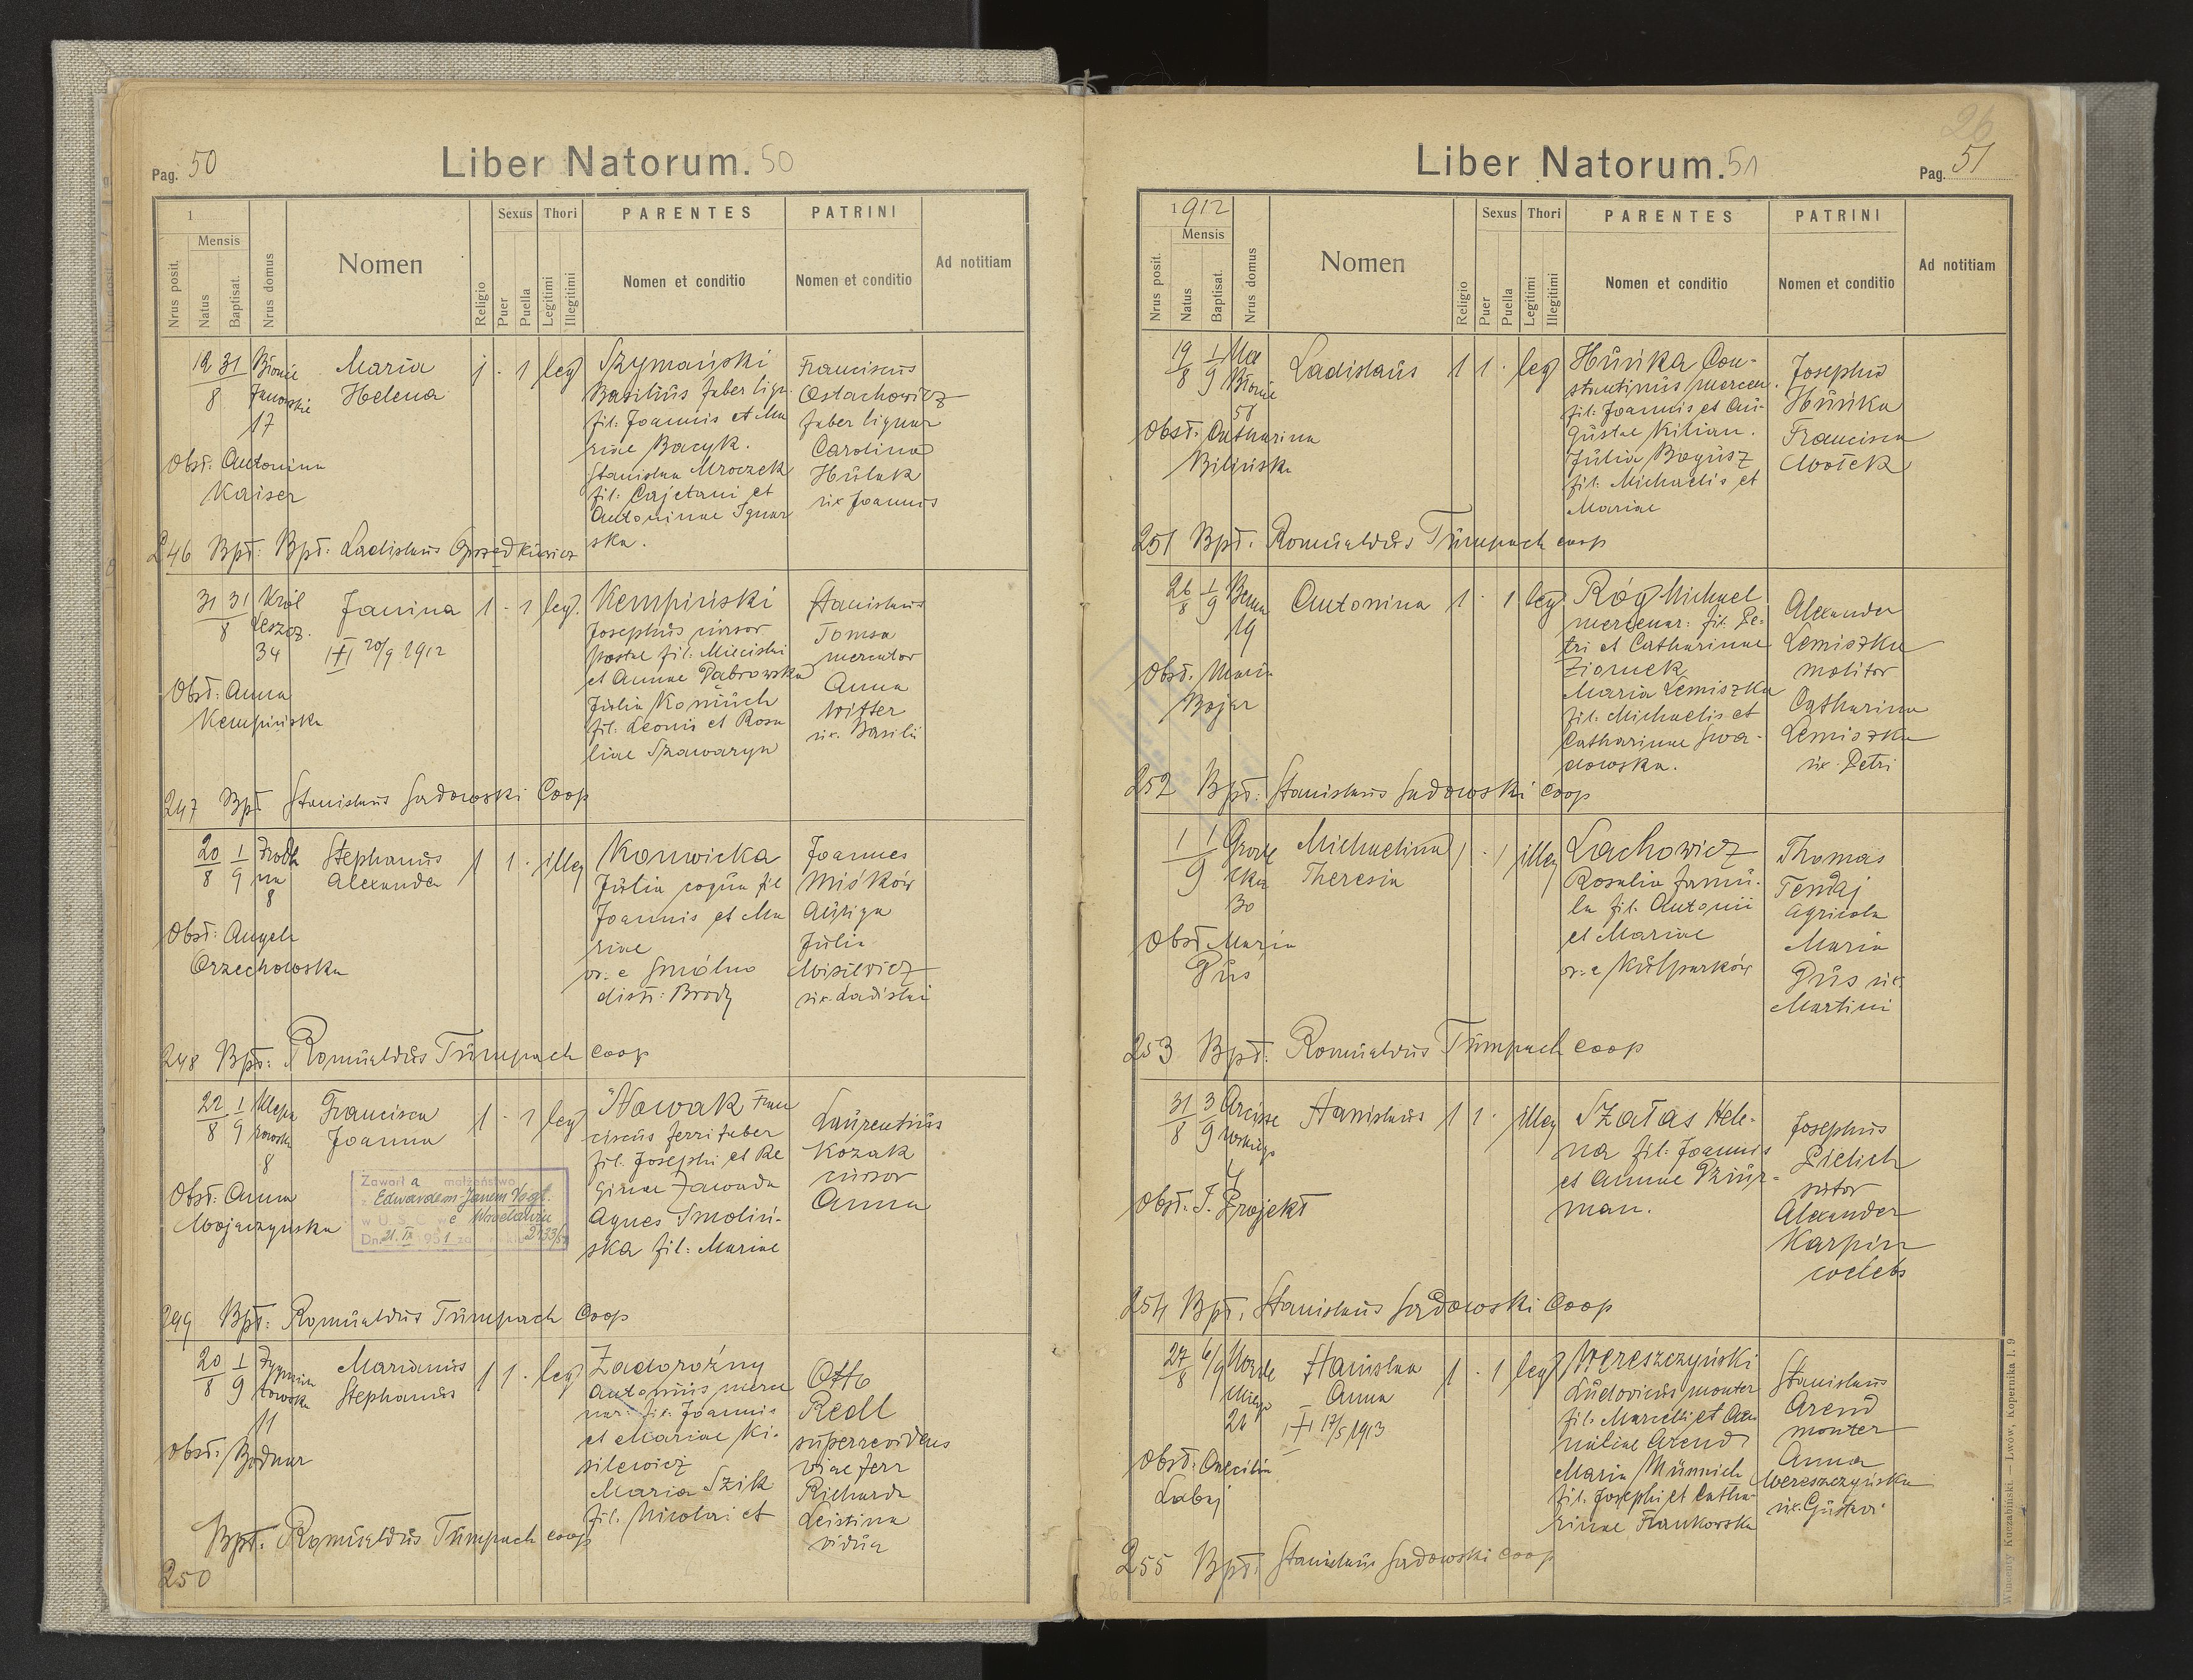 Pag. 50
Liber Natorum. 50
1
Mensis
Nrus posit.
Natus
Baptisat.
Nrus domus
Nomen
Religio
Sexus
Puer
Puella
Thori
Legitimi
Illegitimi
PARENTES
Nomen et conditio
PATRINI
Nomen et conditio
Ad notitiam
19/8 31 Błonie Janowskie 17
Maria
Helena
1 - 1 leg
Szymański
Basilius faber lign.
fil: Joannis et Ma
riae Bacyk.
Stanislaa Mroczek
fil: Cajetani et
Antoninae
ska.
Franciscus
Ostachowicz
faber lignar
Carolina
Hulak
ux Joannis
Obst: Antonina
Kaiser
246 Bpt: Bpt: Ladislaus
31 31/8 Król Leszcz. 34
Janina
20/9 1912
1 - 1 leg.
Kempiński
Josephus cursor
postae fil: Miecislai
et Annae Dąbrowska
Julia
fil: Leonis et Rosa
liae Szawaryn
Stanislaus
Tomsa
mercator
Anna
Witter
ux. Basilii
Obst: Anna
Kempińska
247 Bpt Stanislaus Sadowski Coop
20/8 1/9 Źródla
na
8
Stephanus
Alexander
1 1 · illeg
Konwicka
Julia coqua fil
Joannis et Ma
riae
or. e Smólno
distr: Brody
Joannes
Miśków
Auriga
Julia
Misiewicz
ux. Ladislai
Obst: Angela
Orzechowska
248 Bpt: Romualdus Tumpach coop
22/8 1/9 Klepa
rowska
8
Francisca
Joanna
1 - 1 leg
Nowak Fran
ciscus ferrifaber
fil. Josephi et Re
ginae Zawada
Agnes Smoliń-
ska fil: Mariae
Laurentius
Kozak
cursor
Anna
Obst: Anna
Wojczyńska
Zawarła małżeństwo
z Edwardem Janem Vogt.
w U.S.C. we Wrocławiu
Dn. 21.IX 1951 za 2133/51
249 Bpt: Romualdus Tumpach Coop
20/8 1/9 Zygmun
towska
11
Marianus
Stephanus
1 1 · leg
Zadorożny
Antonius merce
nar: fil: Joannis
et Mariae Ki-
silewicz
Maria Szik
fil. Nicolai et
Otto
Redl
superrevidens
viae ferr
Richarda
Leistina
vidua
Obst: Bodnar
Bpt: Romualdus Tumpach coop
250
26
Liber Natorum. 51
Pag. 51
1912
Mensis
Nrus posit.
Natus
Baptisat.
Nrus domus
Nomen
Religio
Sexus
Puer
Puella
Thori
Legitimi
Illegitimi
PARENTES
Nomen et conditio
PATRINI
Nomen et conditio
Ad notitiam
19/8 1/9 Na Błonie 58
Ladislaus
1 1 · leg
Huńka Con-
stantinus mercen.
fil: Joannis et Au-
gustae Kilian.
Julia Bogusz
fil: Michaelis et
Mariae
Josephus
Huńka
Francisca
Wołek
Obst: Catharina
Bilińska
251 Bpt: Romualdus Tumpach coop
26/8 1/9 Bema 19
Antonina
1 · 1 leg
Róg Michael
mercenar: fil. Pe-
tri et Catharinae
Ziomek
Maria Lemiszka
fil. Michaelis et
Catharinae Gwa-
dowska.
Alexander
Lemiszka
molitor
Catharina
Lemiszka
ux. Petri
Obst. Maria
Bojar
252 Bpt: Stanislaus Sadowski coop
1 1/9 Grode
cka
30
Michaelina
Theresia
1 · 1 illeg
Lachowicz
Rosalia famu-
la fil. Antonii
et Mariae
or: e Kulparków
Thomas
Tendaj
agricola
Maria
Gus ux.
Martini
Obst Maria
Gus
253 Bpt: Romualdus Tumpach coop
31/8 3/9 Arcisze
wskiego
4
Stanislaus
1 1 · illeg
Szałas Hele-
na fil: Joannis
et Annae Dziur-
man.
Josephus
Pielich
sutor
Alexander
Karpin
coelebs
Obst. J. Projekt
254 Bpt. Stanislaus Sadowski Coop
27/8 6/9
26
Stanislaa
Anna
17/5 1913
1 · 1 leg
Wereszczyński
Ludovicus monter
fil: Marcelli et Ae
miliae Arend
Maria Münnich
fil. Josephi et Catha-
rinae Frankowska
Stanislaus
Arend
monter
Anna
Wereszczyńska
ux. Gustavi
Obst: Caecilia
Labaj
255 Bpt. Stanislaus Sadowski coop
26
Wincenty Kuczabiński. — Lwów, Kopernika l. 9